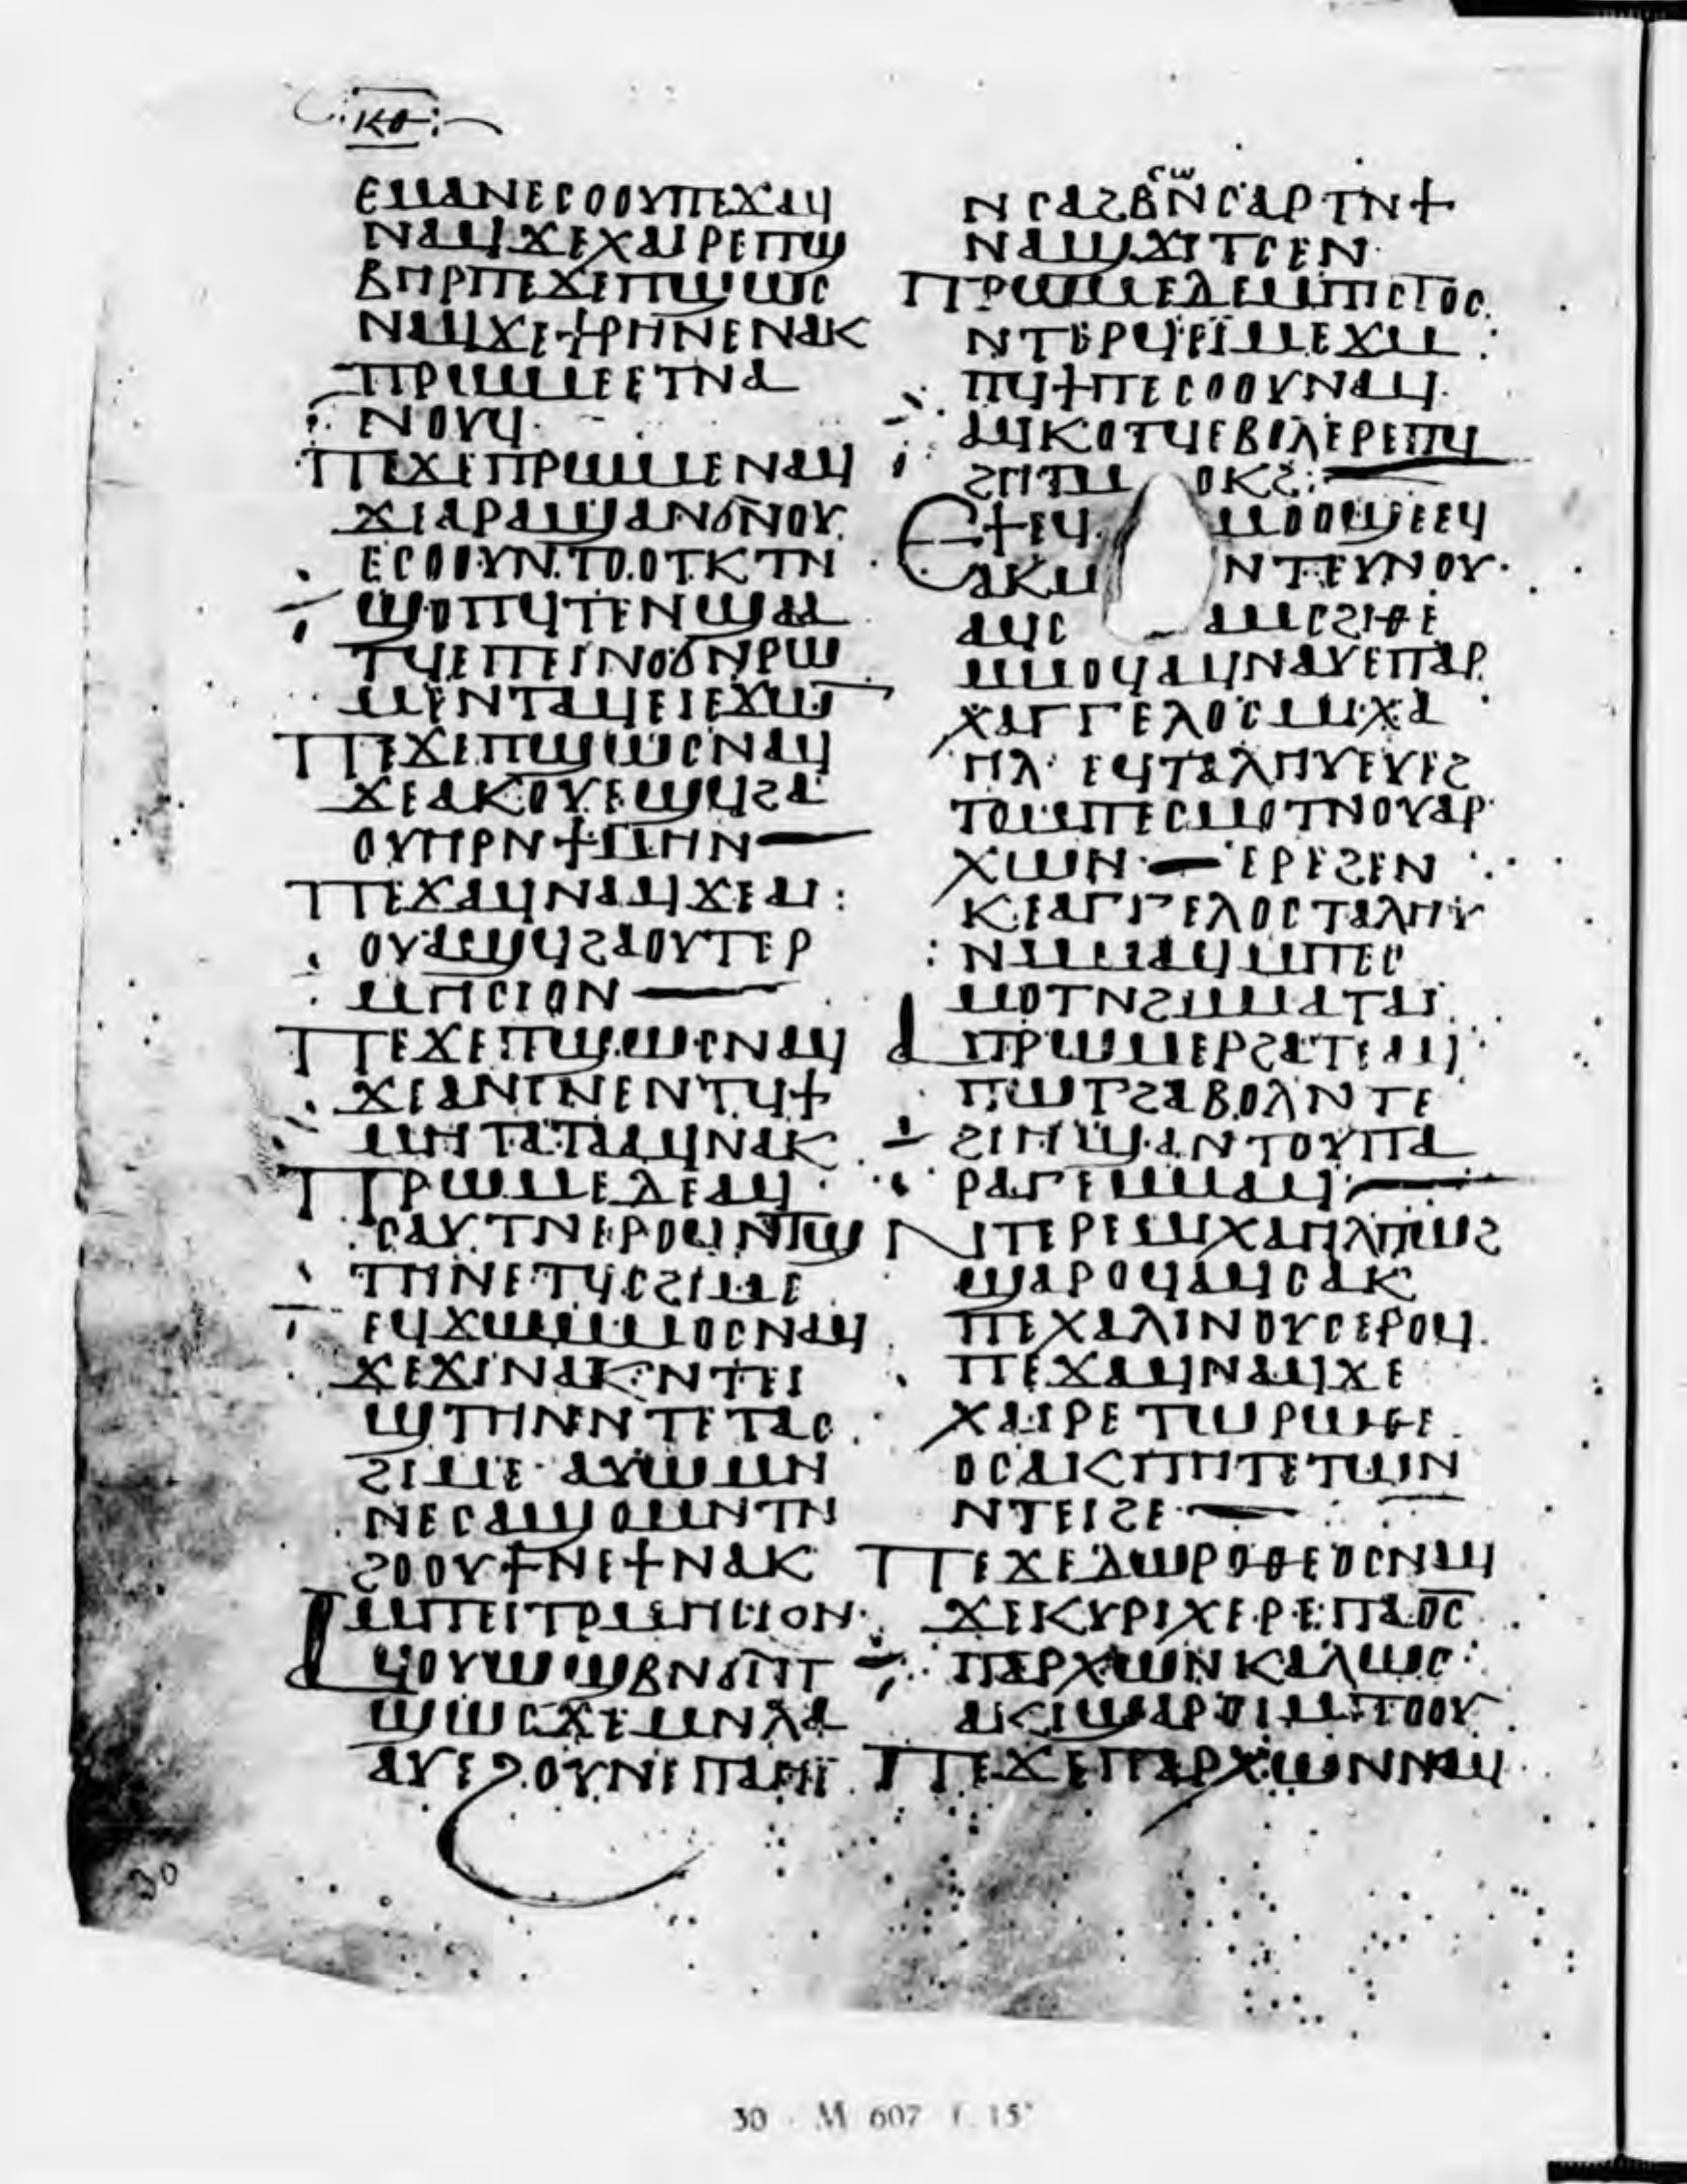 ⲕⲑ
ⲉⲙⲁⲛⲉⲥⲟⲟⲩⲡⲉϫⲁϥ
ⲛⲁϥϫⲉⲭⲁⲓⲣⲉⲡϣ
ⲃⲏⲣⲡⲉϫⲉⲡϣⲱⲥ
ⲛⲁϥϫⲉϯⲣⲏⲛⲉⲛⲁⲕ
ⲡⲣⲱⲙⲉⲉⲧⲛⲁ
ⲛⲟⲩϥ
ⲡⲉϫⲉⲡⲣⲱⲙⲉⲛⲁϥ
ϫⲓⲁⲣⲁϣⲁⲛϭⲛⲟⲩ
ⲉⲥⲟⲟⲩⲛⲧⲟⲟⲧⲕⲧⲛ
ϣⲟⲡϥⲧⲉⲛϣⲁⲁ
ⲧϥⲉⲡⲉⲓⲛⲟϭⲛⲣⲱ
ⲙⲉⲛⲧⲁϥⲉⲓⲉϫⲱⲓ
ⲡⲉϫⲉⲡϣⲱⲥⲛⲁϥ
ϫⲉⲁⲕⲟⲩⲉϣϥϩⲁ
ⲟⲩⲏⲣⲛϯⲙⲏⲛ
ⲡⲉϫⲁϥⲛⲁϥϫⲉⲁⲓ
ⲟⲩⲁϣϥϩⲁⲟⲩⲧⲉⲣ
ⲙⲏⲥⲓⲟⲛ
ⲡⲉϫⲉⲡϣⲱⲥⲛⲁϥ
ϫⲉⲁⲛⲓⲛⲉⲛⲧϥϯ
ⲙⲏⲧⲁⲧⲁⲁϥⲛⲁⲕ
ⲡⲣⲱⲙⲉⲇⲉⲁϥ
ⲥⲁⲩⲧⲛⲉⲣⲟϥⲛⲧϣ
ⲧⲏⲛⲉⲧϥⲥϩⲓⲙⲉ
ⲉϥϫⲱⲙⲙⲟⲥⲛⲁϥ
ϫⲉϫⲓⲛⲁⲕⲛⲧⲉⲓ
ϣⲧⲏⲛⲛⲧⲉⲧⲁⲥ
ϩⲓⲙⲉ ⲁⲩⲱⲙⲛ
ⲛⲉⲥⲁϣⲟⲙⲛⲧⲛ
ϩⲟⲟⲩϯⲛⲉϯⲛⲁⲕ
ⲙⲡⲉⲓⲧⲣⲙⲏⲥⲓⲟⲛ
ⲁϥⲟⲩⲱϣⲃⲛϭⲓⲡ
ϣⲱⲥϫⲉⲙⲛⲗⲁ
ⲁⲩⲉϩⲟⲩⲛⲉⲡⲁⲏⲓ
ⲥⲱ
ⲛⲥⲁϩⲃⲛⲥⲁⲣⲧⲛϯ
ⲛⲁϣϫⲓⲧⲥⲉⲛ
ⲡⲣⲱⲙⲉⲇⲉⲙⲡⲓⲥⲧⲟⲥ
ⲛⲧⲉⲣϥⲉⲓⲙⲉϫⲙ
ⲡϥϯⲡⲉⲥⲟⲟⲩⲛⲁϥ
ⲁϥⲕⲟⲧϥⲉⲃⲟⲗⲉⲣⲉⲡϥ
ϩⲏⲧⲙ ⲟⲕϩ
ⲉⲧⲓⲉϥ ⲙⲟⲟϣⲉⲉϥ
ⲙⲙⲟϥⲁϥⲛⲁⲩⲉⲡⲁⲣ
ⲭⲁⲅⲅⲉⲗⲟⲥⲙⲓⲭⲁ
ⲏⲗ ⲉϥⲧⲁⲗⲏⲩⲉⲩⲉϩ
ⲧⲟⲙⲡⲉⲥⲙⲟⲧⲛⲟⲩⲁⲣ
ⲭⲱⲛ ⲉⲣⲉϩⲉⲛ
ⲕⲉⲁⲅⲅⲉⲗⲟⲥⲧⲁⲗⲏⲩ
ⲛⲙⲙⲁϥⲙⲡⲉⲥ
ⲙⲟⲧⲛϩⲛⲙⲁⲧⲁⲓ
ⲁⲡⲣⲱⲙⲉⲣϩⲁⲧⲉⲁϥ
ⲡⲱⲧϩⲁⲃⲟⲗⲛⲧⲉ
ϩⲓⲏϣⲁⲛⲧⲟⲩⲡⲁ
ⲣⲁⲅⲉⲙⲙⲁϥ
ⲛⲧⲉⲣⲉⲙⲓⲭⲁⲏⲗⲡⲱϩ
ϣⲁⲣⲟϥⲁϥⲥⲁⲕ
ⲡⲉⲭⲁⲗⲓⲛⲟⲩⲥⲉⲣⲟϥ
ⲡⲉϫⲁϥⲛⲁϥϫⲉ
ⲭⲁⲓⲣⲉⲧⲱⲣⲱⲑⲉ
ⲟⲥⲁⲕⲡⲏⲧⲉⲧⲱⲛ
ⲛⲧⲉⲓϩⲉ
ⲡⲉϫⲉⲇⲱⲣⲟⲑⲉⲟⲥⲛⲁϥ
ϫⲉⲕⲩⲣⲓⲭⲉⲣⲉⲡⲁⲟⲥ
ⲡⲁⲣⲭⲱⲛⲕⲁⲗⲱⲥ
ⲁⲕⲓϣⲁⲣⲟⲓⲙⲡⲟⲟⲩ
ⲡⲉϫⲉⲡⲁⲣⲭⲱⲛⲛⲁϥ
30
30 M 607 f. 15ᵛ